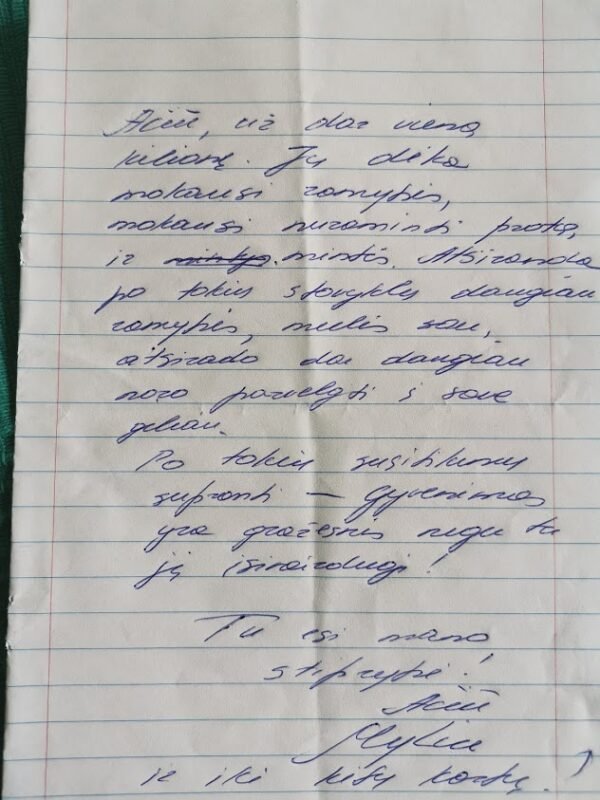 Ačiū, už dar vieną
kilimą. Jų dėka
mokausi ramybės,
mokausi nuraminti protą,
ir mintis. Atsiranda
po tokių stovyklų daugiau
ramybės, meilės sau,
atsirado dar daugiau
noro pažvelgti į save
giliau.
Po tokių susitikimų
supranti – Gyvenimas
yra gražesnis negu tu
jį įsivaizduoji!
Tu esi mano
stiprybė!
Ačiū
Myliu
ir iki kitų kartų.